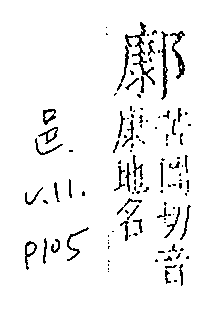 鄺
苦岡切音
康地名
邑.
v.11.
p105